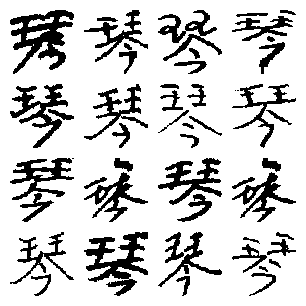 琴琴琴琴
琴琴琴琴
琴琴
琴琴琴琴